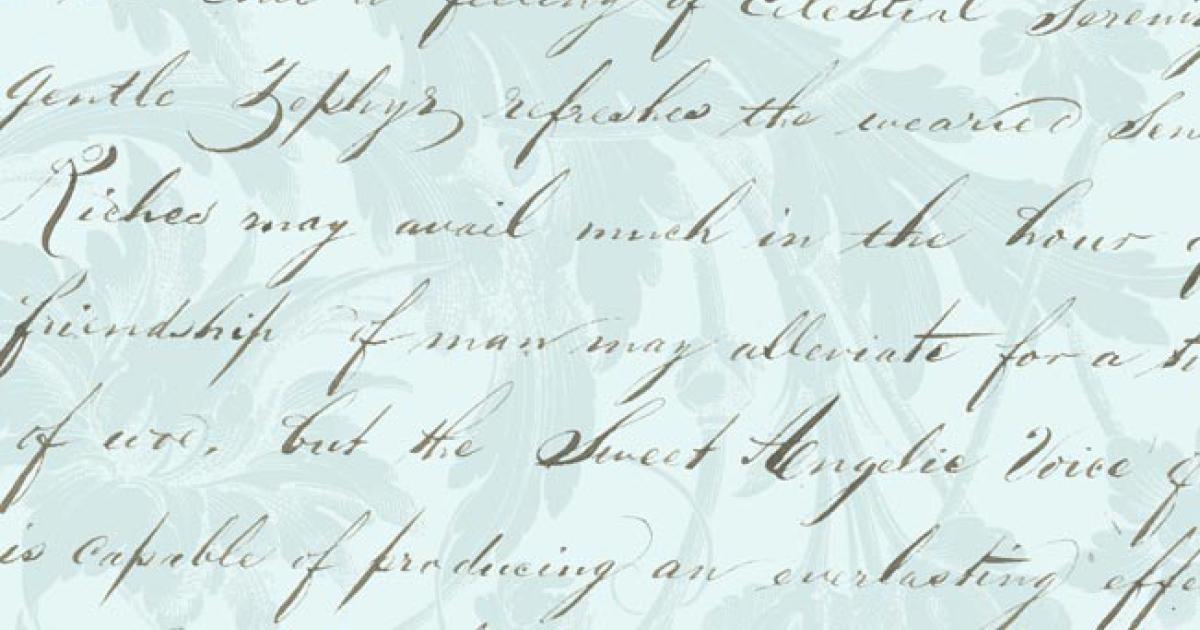 a feeling of Celestial
Gentle Zephyr refreshes the wearied
Riches may avail much in the hour
friendship of man may alleviate for a
of woe, but the Sweet Angelic Voice
is capable of producing an everlasting